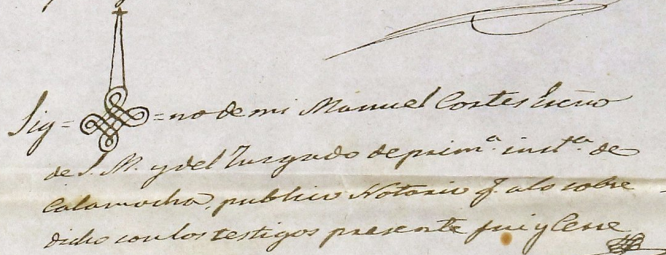 Sig= =no de mi Manuel Cortes Escño
de S. M. y del Juzgado de prim.ª inst.ª de
Calamocha, publico Notario q. a lo sobre
dicho con los testigos presente fui y Cerre